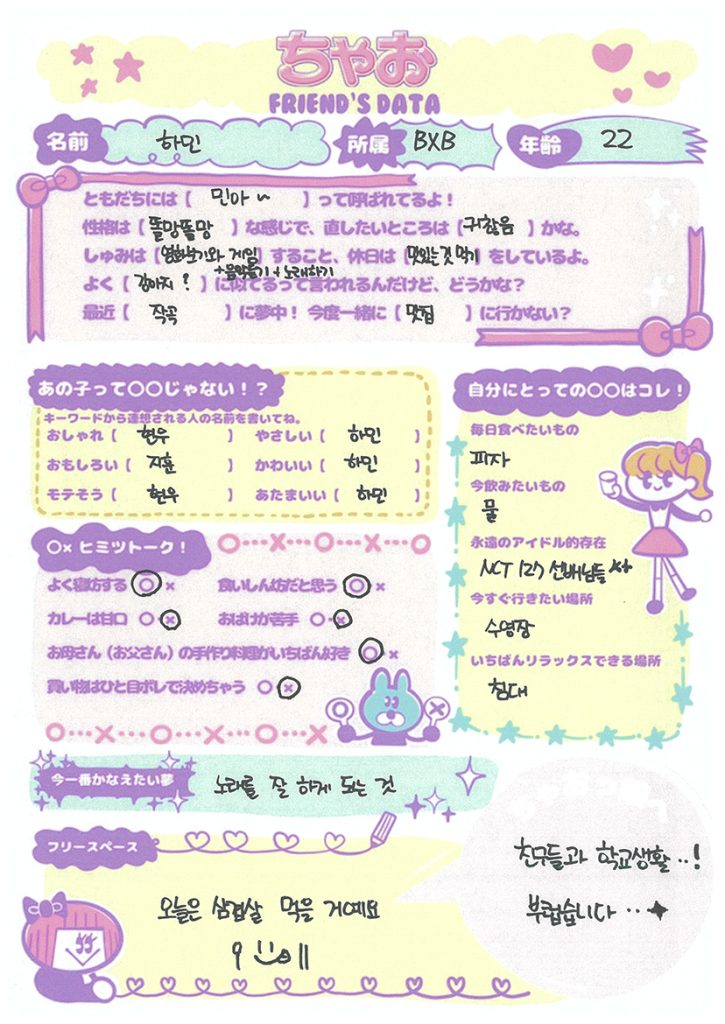 ちゃお
FRIEND'S DATA
名前 하민 所属 BXB 年齢 22
ともだちには【 민아~ 】って呼ばれてるよ！
性格は【 똘망똘망 】な感じで、直したいところは【 귀찮음 】かな。
しゅみは【 영화보기와 게임 】すること、休日は【 맛있는것 먹기 】をしているよ。
+음악듣기+노래하기
よく【 강아지? 】に似てるって言われるんだけど、どうかな？
最近【 작곡 】に夢中！ 今度一緒に【 맛집 】に行かない？
あの子って〇〇じゃない！？
キーワードから連想される人の名前を書いてね。
おしゃれ【 현우 】 やさしい【 하민 】
おもしろい【 지훈 】 かわいい【 하민 】
モテそう【 현우 】 あたまいい【 하민 】
自分にとっての〇〇はコレ！
毎日食べたいもの
피자
今飲みたいもの
물
永遠のアイドル的存在
NCT 127 선배님들
今すぐ行きたい場所
수영장
いちばんリラックスできる場所
침대
〇× ヒミツトーク！
よく寝坊する 〇 × 食いしん坊だと思う 〇 ×
カレーは甘口 〇 × おばけが苦手 〇 ×
お母さん（お父さん）の手作り料理がいちばん好き 〇 ×
買い物はひと目ボレで決めちゃう 〇 ×
今一番かなえたい夢 노래를 잘 하게 되는 것
フリースペース
오늘은 삼겹살 먹을 거예요
친구들과 학교생활..!
부럽습니다...